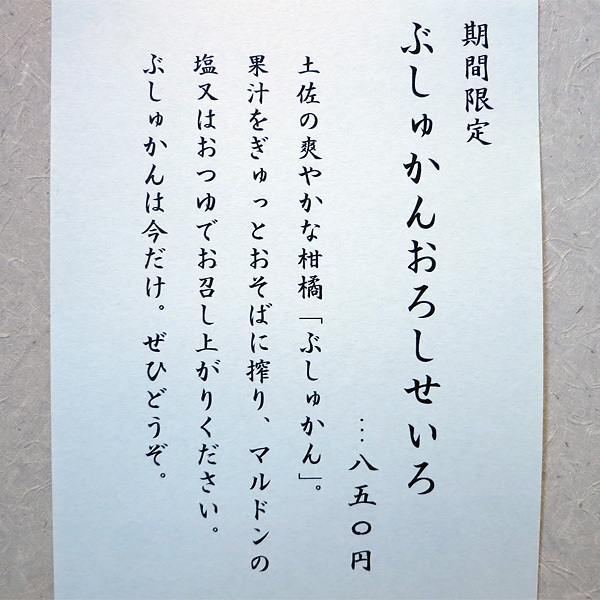 期間限定
ぶしゅかんおろしせいろ
…八五〇円
土佐の爽やかな柑橘「ぶしゅかん」。
果汁をぎゅっとおそばに搾り、マルドンの
塩又はおつゆでお召し上がりください。
ぶしゅかんは今だけ。ぜひどうぞ。